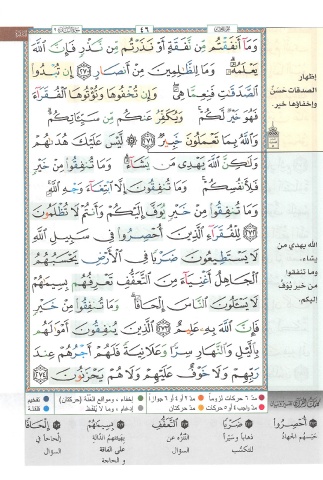 ٤٦
وَمَآ أَنفَقْتُم مِّن نَّفَقَةٍ أَوْ نَذَرْتُم مِّن نَّذْرٍ فَإِنَّ ٱللَّهَ
يَعْلَمُهُۥ ۗ وَمَا لِلظَّٰلِمِينَ مِنْ أَنصَارٍ ﴿٢٧٠﴾ إِن تُبْدُوا۟
ٱلصَّدَقَٰتِ فَنِعِمَّا هِىَ ۖ وَإِن تُخْفُوهَا وَتُؤْتُوهَا ٱلْفُقَرَآءَ
فَهُوَ خَيْرٌ لَّكُمْ ۚ وَيُكَفِّرُ عَنكُم مِّن سَيِّـَٔاتِكُمْ ۗ
وَٱللَّهُ بِمَا تَعْمَلُونَ خَبِيرٌ ﴿٢٧١﴾ ۞ لَّيْسَ عَلَيْكَ هُدَىٰهُمْ
وَلَٰكِنَّ ٱللَّهَ يَهْدِى مَن يَشَآءُ ۗ وَمَا تُنفِقُوا۟ مِنْ خَيْرٍ
فَلِأَنفُسِكُمْ ۚ وَمَا تُنفِقُونَ إِلَّا ٱبْتِغَآءَ وَجْهِ ٱللَّهِ ۚ
وَمَا تُنفِقُوا۟ مِنْ خَيْرٍ يُوَفَّ إِلَيْكُمْ وَأَنتُمْ لَا تُظْلَمُونَ
﴿٢٧٢﴾ لِلْفُقَرَآءِ ٱلَّذِينَ أُحْصِرُوا۟ فِى سَبِيلِ ٱللَّهِ
لَا يَسْتَطِيعُونَ ضَرْبًا فِى ٱلْأَرْضِ يَحْسَبُهُمُ
ٱلْجَاهِلُ أَغْنِيَآءَ مِنَ ٱلتَّعَفُّفِ تَعْرِفُهُم بِسِيمَٰهُمْ
لَا يَسْـَٔلُونَ ٱلنَّاسَ إِلْحَافًا ۗ وَمَا تُنفِقُوا۟ مِنْ خَيْرٍ
فَإِنَّ ٱللَّهَ بِهِۦ عَلِيمٌ ﴿٢٧٣﴾ ٱلَّذِينَ يُنفِقُونَ أَمْوَٰلَهُم
بِٱلَّيْلِ وَٱلنَّهَارِ سِرًّا وَعَلَانِيَةً فَلَهُمْ أَجْرُهُمْ عِندَ
رَبِّهِمْ وَلَا خَوْفٌ عَلَيْهِمْ وَلَا هُمْ يَحْزَنُونَ ﴿٢٧٤﴾
إظهار
الصدقات حَسَنٌ
وإخفاؤها خير.
الله يهدي من
يشاء،
وما تنفقوا
من خير يُوفَّ
إليكم.
مدّ ٦ حركات لزوماً مدّ ٢ أو ٤ أو ٦ جوازاً إخفاء، ومواقع الغُنَّة (حركتان) تفخيم
مدّ واجب ٤ أو ٥ حركات مدّ حركتان إدغام، وما لا يُلفَظ قلقلة
أُحْصِرُوا۟ ضَرْبًا ٱلتَّعَفُّفِ بِسِيمَٰهُمْ إِلْحَافًا
حَبَسَهم الجهادُ ذهاباً وسَيْراً التنزُّه عن بهيئتهم الدَّالة إلحاحاً في
للتكسُّب السؤال على الفاقة السؤال
والحاجة